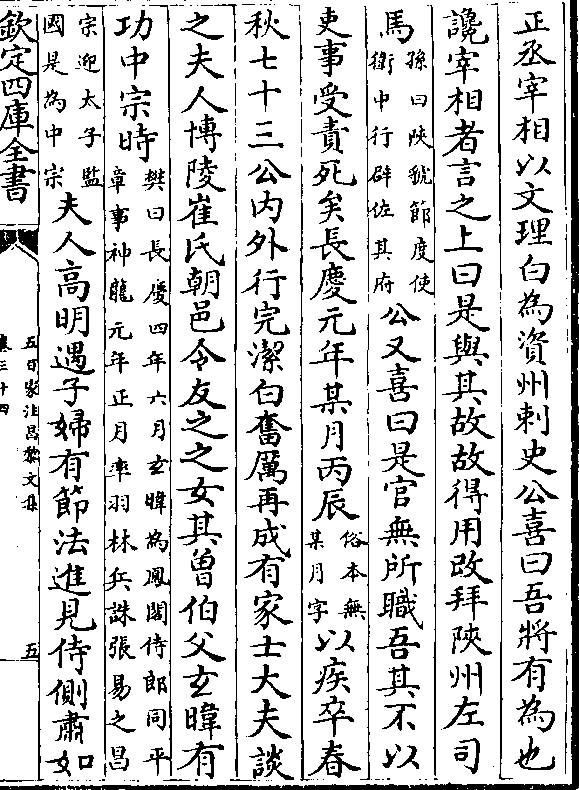 正丞宰相以文理白為資州刺史公喜曰吾將有為也
讒宰相者言之上曰是與其故故得用改拜陝州左司
馬孫曰陝虢節度使衛中行辟佐其府公又喜曰是官無所職吾其不以
吏事受責死矣長慶元年某月丙辰俗本無某月字以疾卒春
秋七十三公內外行完潔白奮厲再成有家士大夫談
之夫人博陵崔氏朝邑令友之之女其曾伯父玄暐有
功中宗時樊曰長慶四年六月玄暐為鳳閣侍郎同平章事神龍元年正月率羽林兵誅張易之昌
宗迎太子監國是為中宗夫人高明遇子婦有節法進見侍側肅如
欽定四庫全書
五百家注昌黎文集
卷三十四
五